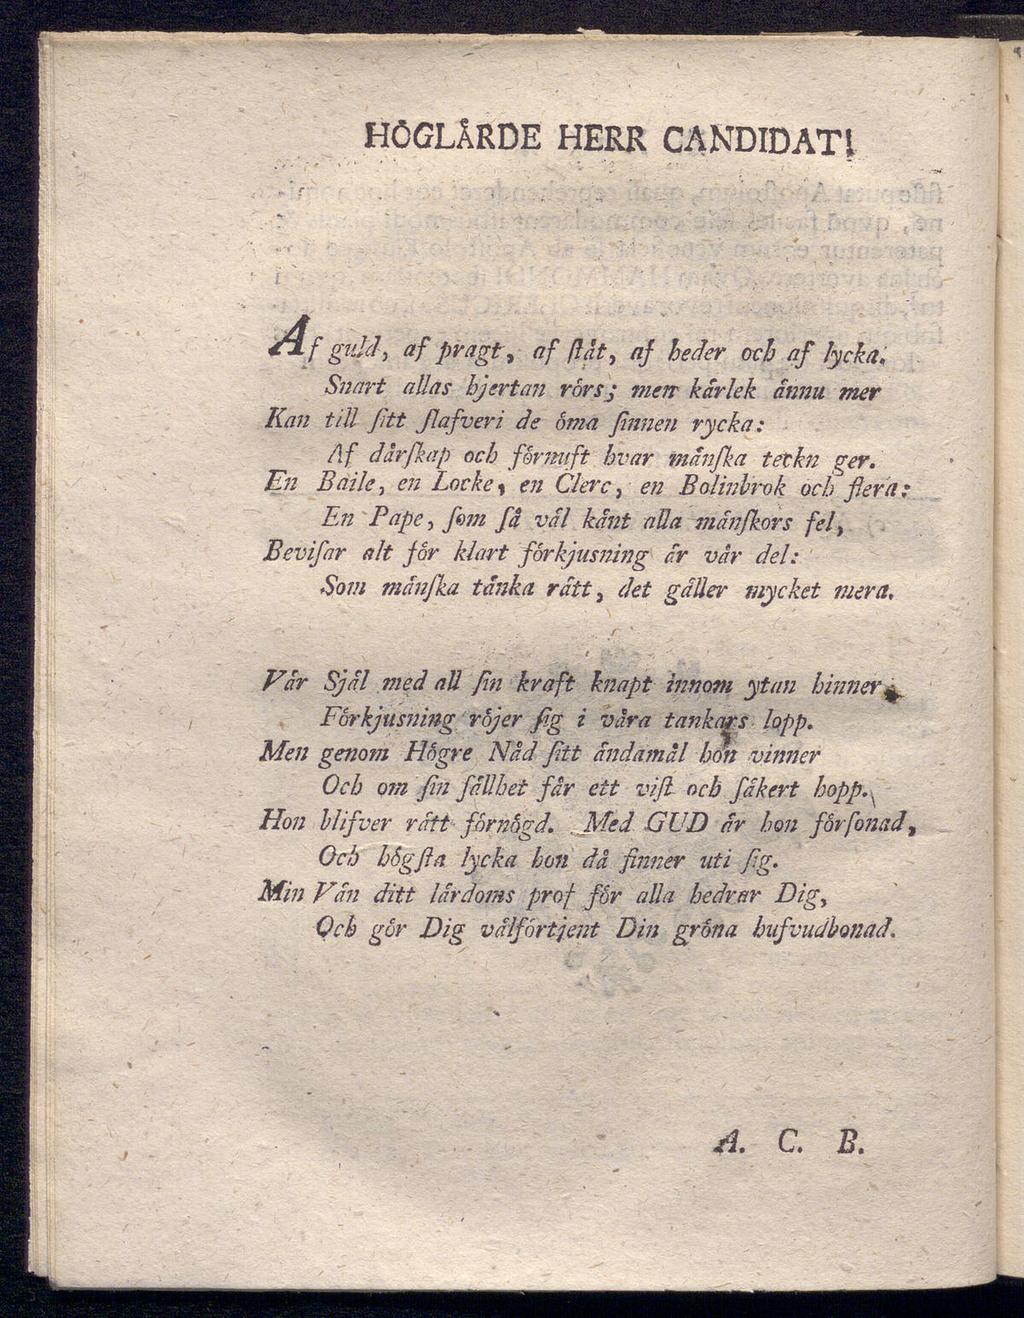 HÖGLÄRDE HERR CANDIDAT!
Af guld, af pragt, af ſtåt, af heder och af lycka.
Snart allas hjertan rörs; men kärlek ännu mer
Kan till ſitt ſlafveri de öma ſinnen rycka:
Af dårſkap och förnuft hvar mänſka teckn ger.
En Baile, en Locke, en Clerc, en Bolinbrok och flera:
En Pape, ſom ſå väl känt alla mänſkors fel,
Beviſar alt för klart förkjusning är vår del:
Som mänſka tänka rätt, det gäller mycket mera.
Vår Själ med all ſin kraft knapt innom ytan hinner.
Förkjusning röjer ſig i våra tankars lopp.
Men genom Högre Nåd ſitt ändamål hon vinner
Och om ſin ſällhet får ett viſt och ſäkert hopp.
Hon blifver rätt förnögd. Med GUD är hon förſonad,
Och högſta lycka hon då finner uti ſig.
Min Vän ditt lärdoms prof för alla hedrar Dig,
Och gör Dig välförtjent Din gröna hufvudbonad.
A. C. B.